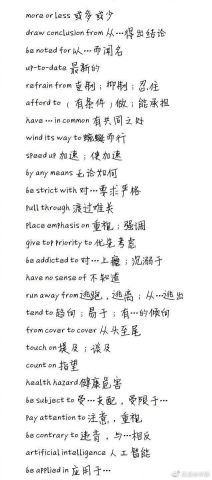 more or less 或多或少
draw conclusion from 从…得出结论
be noted for 以…而闻名
up-to-date 最新的
refrain from 克制；抑制；忍住
afford to （有条件）做；能承担
have … in common 有共同之处
wind its way to 蜿蜒而行
speed up 加速；使加速
by any means 无论如何
be strict with 对…要求严格
pull through 渡过难关
place emphasis on 重视；强调
give top priority to 优先考虑
be addicted to 对…上瘾；沉溺于
have no sense of 不知道
run away from 逃跑，逃离；从…逃出
tend to 趋向；易于；有…的倾向
from cover to cover 从头至尾
touch on 提及；谈及
count on 指望
health hazard 健康危害
be subject to 受…支配，受限于…
pay attention to 注意，重视
be contrary to 违背，与…相反
artificial intelligence 人工智能
be applied in 应用于…